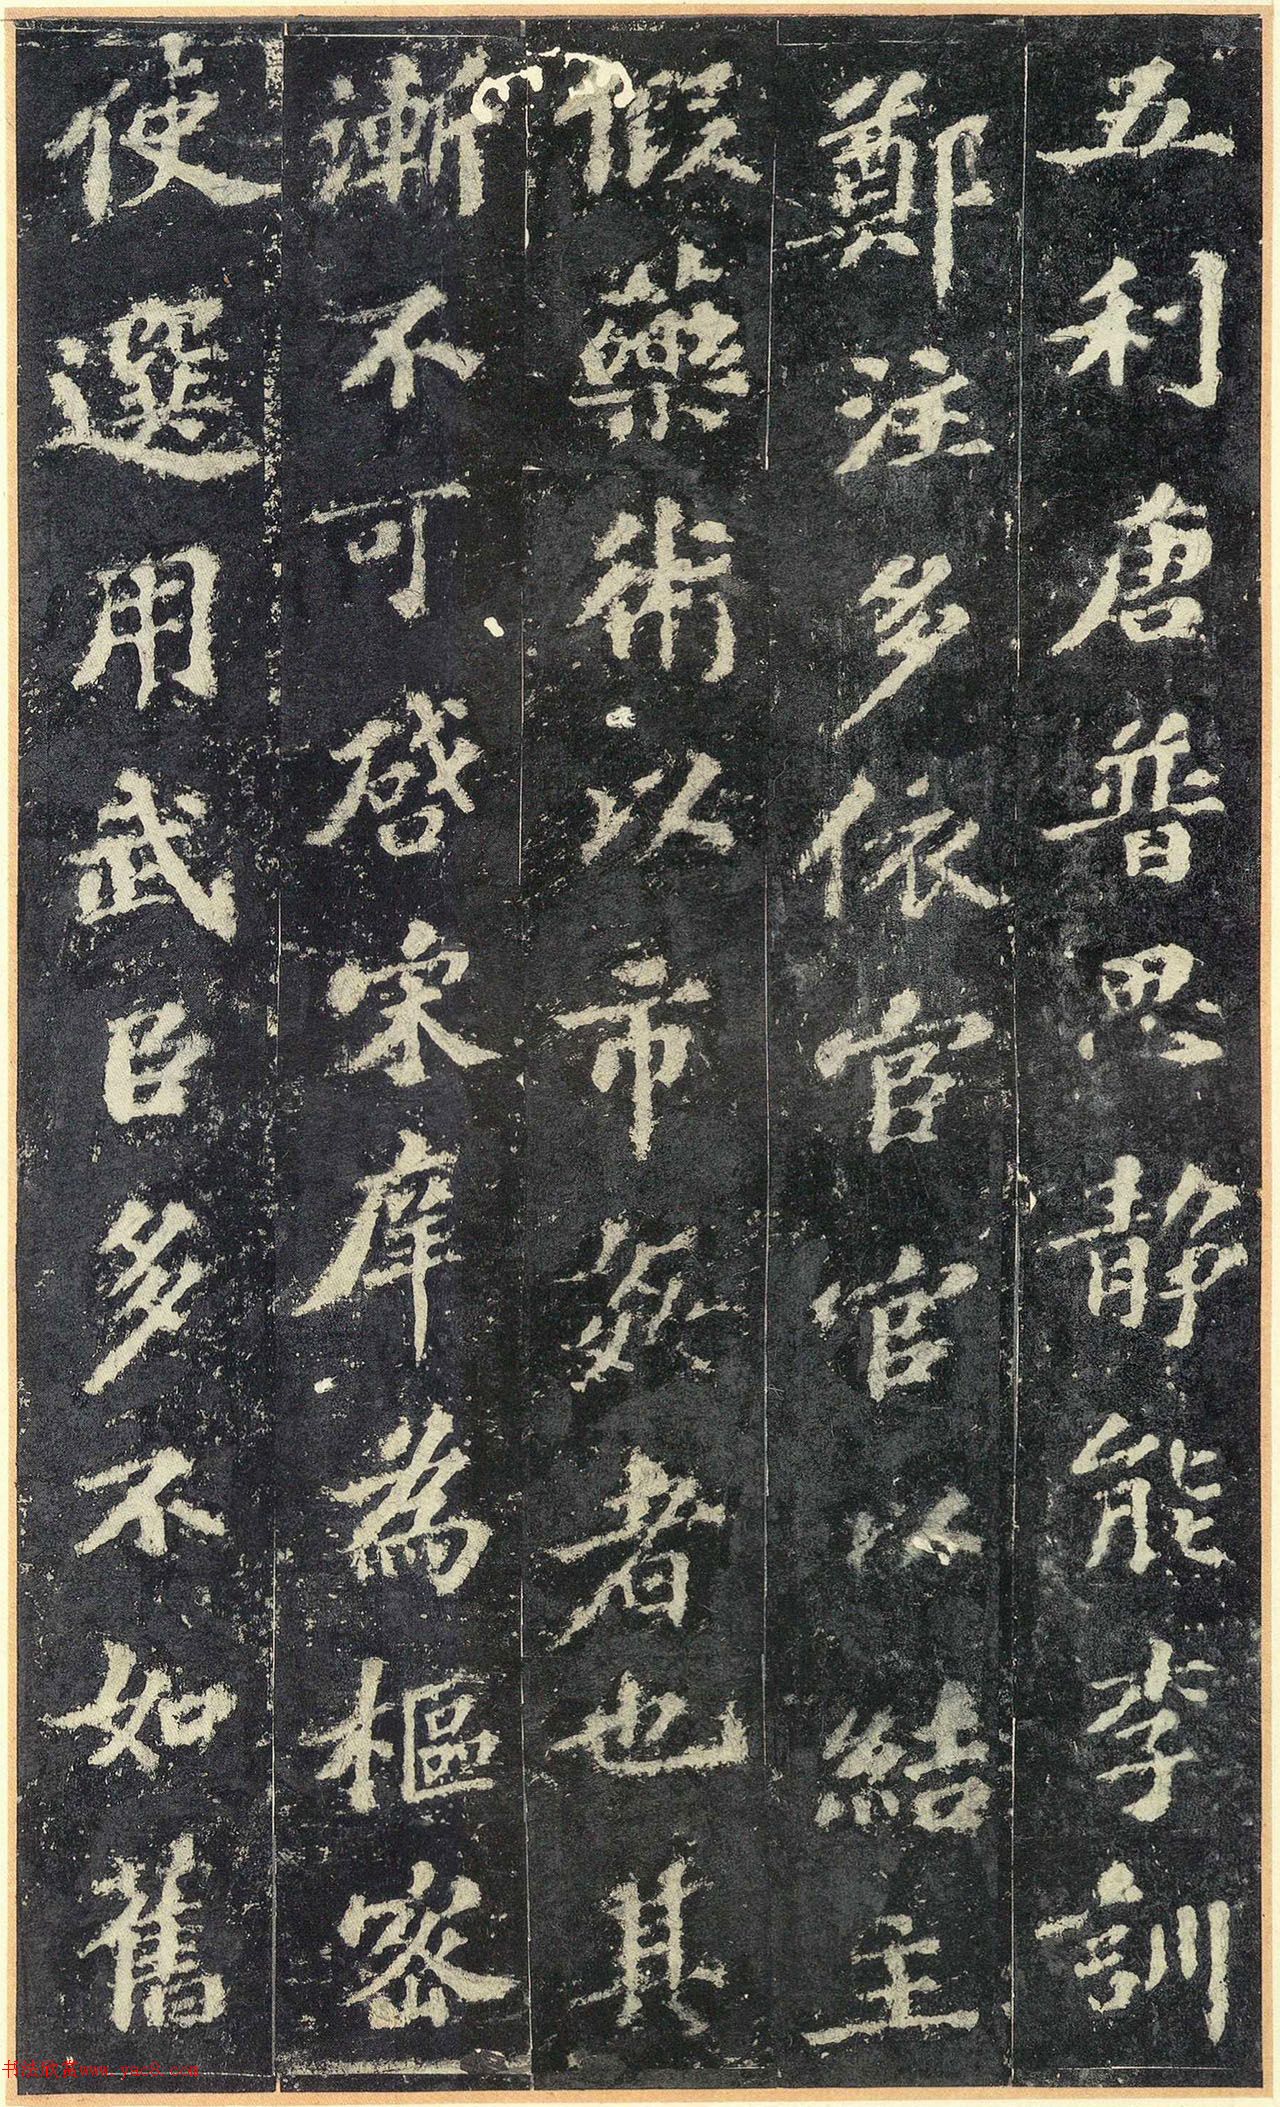 五利唐普思静能李訓
鄭注多依宦官以結主
假藥術以市姦者也其
漸不可啓宋庠為樞密
使選用武臣多不如舊
书法欣赏www.yac8.com